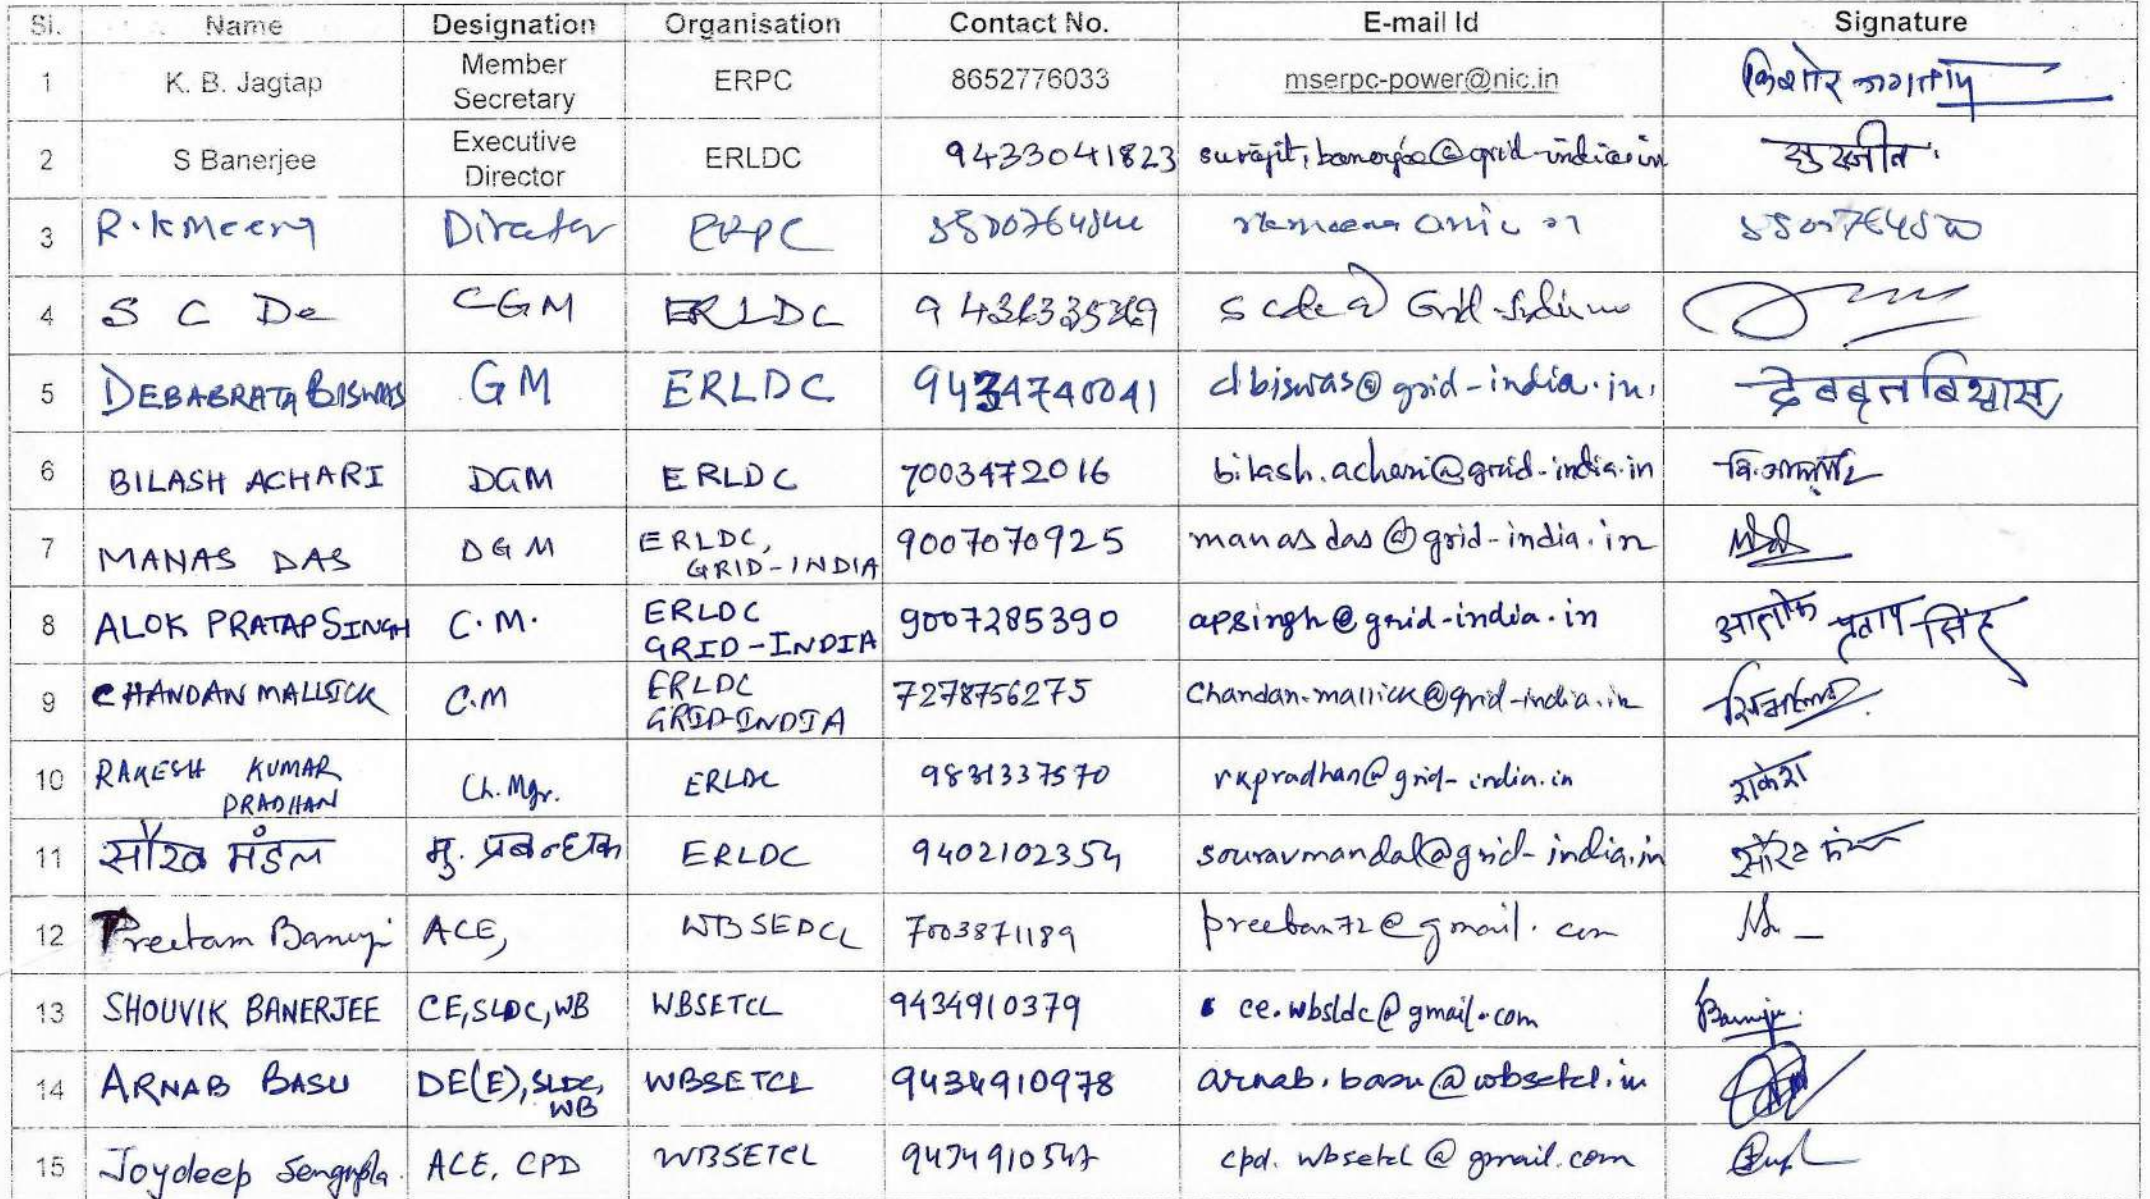 Sl. Name Designation Organisation Contact No. E-mail Id Signature
1 K. B. Jagtap Member Secretary ERPC 8652776033 mserpc-power@nic.in किशोर जगताप
2 S Banerjee Executive Director ERLDC 9433041823 surajit.banerjee@grid-india.in सुरजीत
3 R.K Meena Director ERPC
4 S C De CGM ERLDC scde@
5 DEBABRATA BISWAS GM ERLDC 9434740041 dbiswas@grid-india.in देबब्रत बिश्वास
6 BILASH ACHARI DGM ERLDC 7003472016 bilash.achari@grid-india.in
7 MANAS DAS DGM ERLDC, GRID-INDIA 9007070925 manasdas@grid-india.in
8 ALOK PRATAP SINGH C.M. ERLDC GRID-INDIA 9007285390 apsingh@grid-india.in आलोक प्रताप सिंह
9 CHANDAN MALLICK C.M ERLDC GRID-INDIA 7278756275 Chandan.mallick@grid-india.in
10 RAKESH KUMAR PRADHAN Ch. Mgr. ERLDC 9831337570 rkpradhan@grid-india.in राकेश
11 सौरव मंडल मु. प्रबन्धक ERLDC 9402102354 souravmandal@grid-india.in
12 Preetam Banerji ACE, WBSEDCL 7003871189 preeban72@gmail.com
13 SHOUVIK BANERJEE CE,SLDC,WB WBSETCL 9434910379 ce.wbsldc@gmail.com Banerjee
14 ARNAB BASU DE(E),SLDC, WB WBSETCL 9434910978 arnab.basu@wbsetcl.in
15 Joydeep Sengupta ACE, CPD WBSETCL 9434910547 cpd.wbsetcl@gmail.com